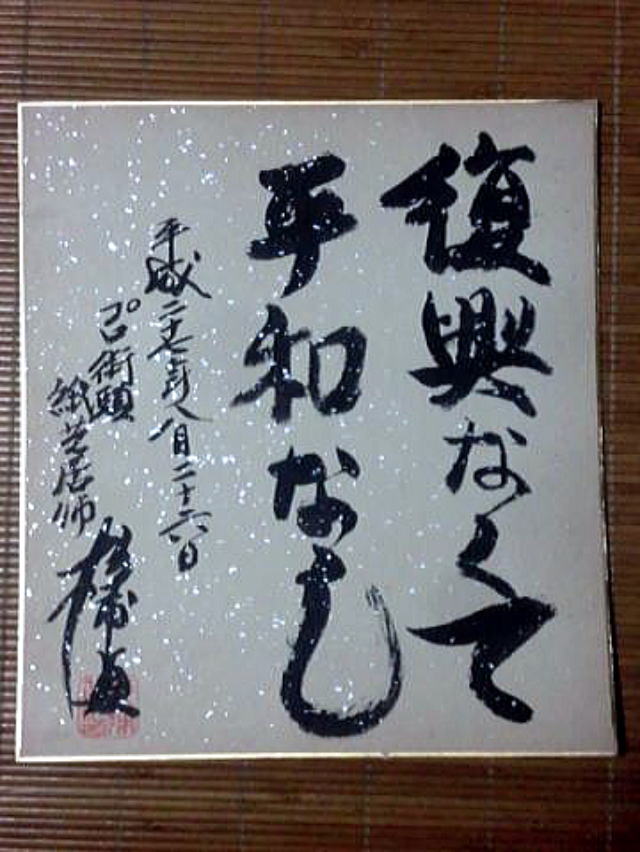 復興なくて
平和なし
平成二十七年八月二十六日
プロ街頭
紙芝居師